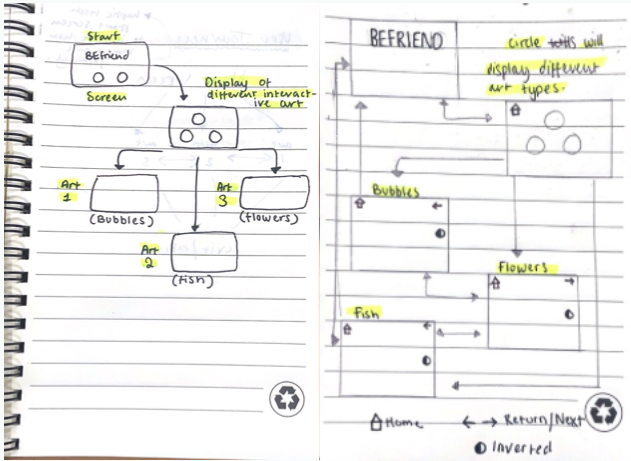 Start
BEfriend
Screen
Display of
different interact-
ive art
Art
1
(Bubbles)
Art
3
(flowers)
Art
2
(fish)
BEFRIEND
circle will
display different
art types.
Bubbles
Flowers
Fish
Home
Return/Next
Inverted